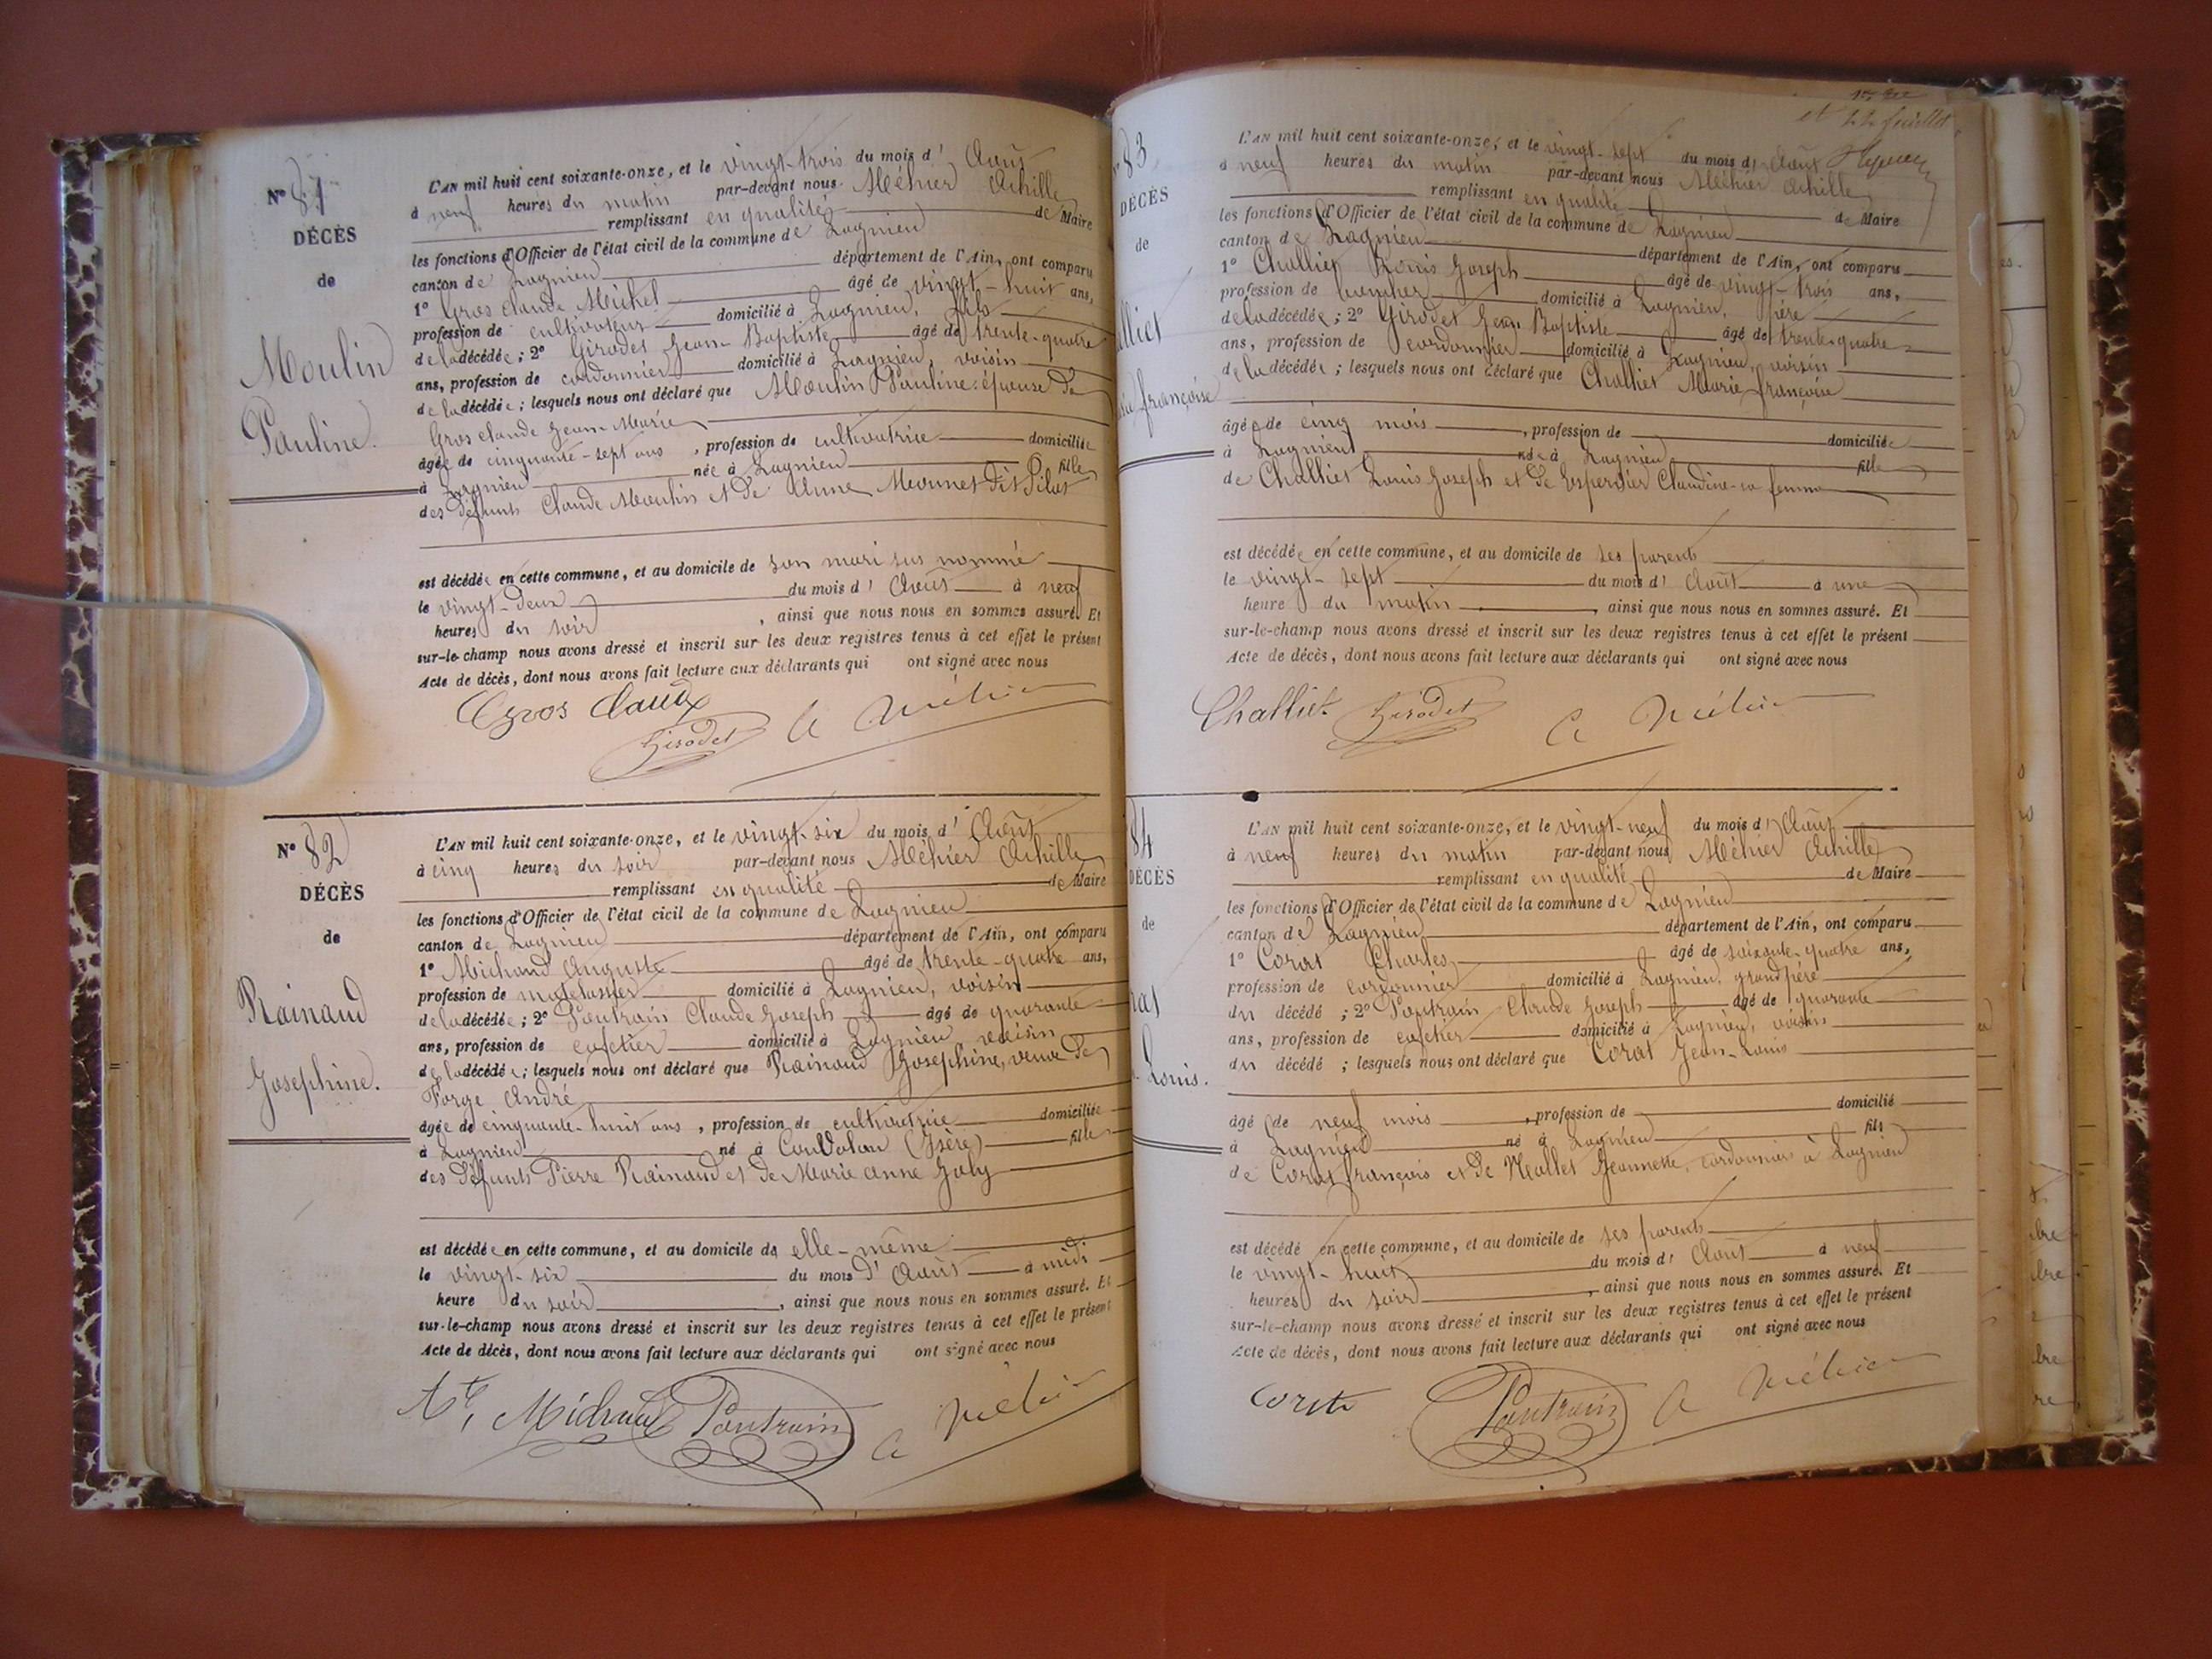 N° 81
DÉCÈS
de
Moulin
Pauline.
L'AN mil huit cent soixante-onze, et le vingt-trois du mois d' Août
à neuf heures du matin par-devant nous Méhier Achille
remplissant en qualité de Maire
les fonctions d'Officier de l'état civil de la commune de Lagnieu
canton de Lagnieu département de l'Ain, ont comparu
1° Gros Claude Michel âgé de vingt-huit ans,
profession de cultivateur domicilié à Lagnieu, fils
de la décédée; 2° Girodet Jean Baptiste âgé de trente-quatre
ans, profession de cordonnier domicilié à Lagnieu, voisin
de la décédée; lesquels nous ont déclaré que Moulin Pauline épouse de
Gros Claude Jean-Marie
âgée de cinquante-sept ans, profession de cultivatrice domiciliée
à Lagnieu née à Lagnieu fille
des défunts Claude Moulin et de Anne Meunet dit Pilat
est décédée en cette commune, et au domicile de son mari sus nommé
le vingt-deux du mois d' Août à neuf
heures du soir, ainsi que nous nous en sommes assuré. Et
sur-le-champ nous avons dressé et inscrit sur les deux registres tenus à cet effet le présent
Acte de décès, dont nous avons fait lecture aux déclarants qui ont signé avec nous
Gros Claude
Girodet A Méhier
N° 82
DÉCÈS
de
Rainaud
Josephine.
L'AN mil huit cent soixante-onze, et le vingt-six du mois d' Août
à cinq heures du soir par-devant nous Méhier Achille
remplissant en qualité de Maire
les fonctions d'Officier de l'état civil de la commune de Lagnieu
canton de Lagnieu département de l'Ain, ont comparu
1° Michaud Auguste âgé de trente-quatre ans,
profession de matelassier domicilié à Lagnieu, voisin
de la décédée; 2° Pautrain Claude Joseph âgé de quarante
ans, profession de domicilié à Lagnieu voisin
de la décédée; lesquels nous ont déclaré que Rainaud Josephine, veuve de
Forge André
âgée de cinquante-huit ans, profession de cultivatrice domiciliée
à Lagnieu né à (Isère) fille
des défunts Pierre Rainaud et de Marie Anne Joly
est décédée en cette commune, et au domicile de elle-même
le vingt-six du mois d' Août à midi
heure du soir, ainsi que nous nous en sommes assuré. Et
sur-le-champ nous avons dressé et inscrit sur les deux registres tenus à cet effet le présent
Acte de décès, dont nous avons fait lecture aux déclarants qui ont signé avec nous
Ate, Michaud Pautrain A Méhier
et 22 feuillet
83
DÉCÈS
de
lliet
françoise
L'AN mil huit cent soixante-onze, et le vingt-sept du mois d' Août
à neuf heures du matin par-devant nous Méhier Achille
remplissant en qualité de Maire
les fonctions d'Officier de l'état civil de la commune de Lagnieu
canton de Lagnieu département de l'Ain, ont comparu
1° Challiet Louis Joseph âgé de vingt-trois ans,
profession de domicilié à Lagnieu, père
de la décédée; 2° Girodet Jean Baptiste âgé de trente-quatre
ans, profession de cordonnier domicilié à Lagnieu, voisin
de la décédée; lesquels nous ont déclaré que Challiet Marie françoise
âgée de cinq mois, profession de domiciliée
à Lagnieu née à Lagnieu fille
de Challiet Louis Joseph et de Claudine sa femme
est décédée en cette commune, et au domicile de ses parents
le vingt-sept du mois d' Août à une
heure du matin, ainsi que nous nous en sommes assuré. Et
sur-le-champ nous avons dressé et inscrit sur les deux registres tenus à cet effet le présent
Acte de décès, dont nous avons fait lecture aux déclarants qui ont signé avec nous
Challiet Girodet A Méhier
84
DÉCÈS
de
rat
Louis.
L'AN mil huit cent soixante-onze, et le vingt-neuf du mois d' Août
à neuf heures du matin par-devant nous Méhier Achille
remplissant en qualité de Maire
les fonctions d'Officier de l'état civil de la commune de Lagnieu
canton de Lagnieu département de l'Ain, ont comparu
1° Corat Charles âgé de soixante-quatre ans,
profession de cordonnier domicilié à Lagnieu, grand père
du décédé; 2° Pautrain Claude Joseph âgé de quarante
ans, profession de domicilié à Lagnieu, voisin
du décédé; lesquels nous ont déclaré que Corat Jean-Louis
âgé de neuf mois, profession de domicilié
à Lagnieu né à Lagnieu fils
de Corat françois et de Mallet Jeannette, cordonniers à Lagnieu
est décédé en cette commune, et au domicile de ses parents
le vingt-huit du mois d' Août à neuf
heures du soir, ainsi que nous nous en sommes assuré. Et
sur-le-champ nous avons dressé et inscrit sur les deux registres tenus à cet effet le présent
Acte de décès, dont nous avons fait lecture aux déclarants qui ont signé avec nous
Pautrain A Méhier